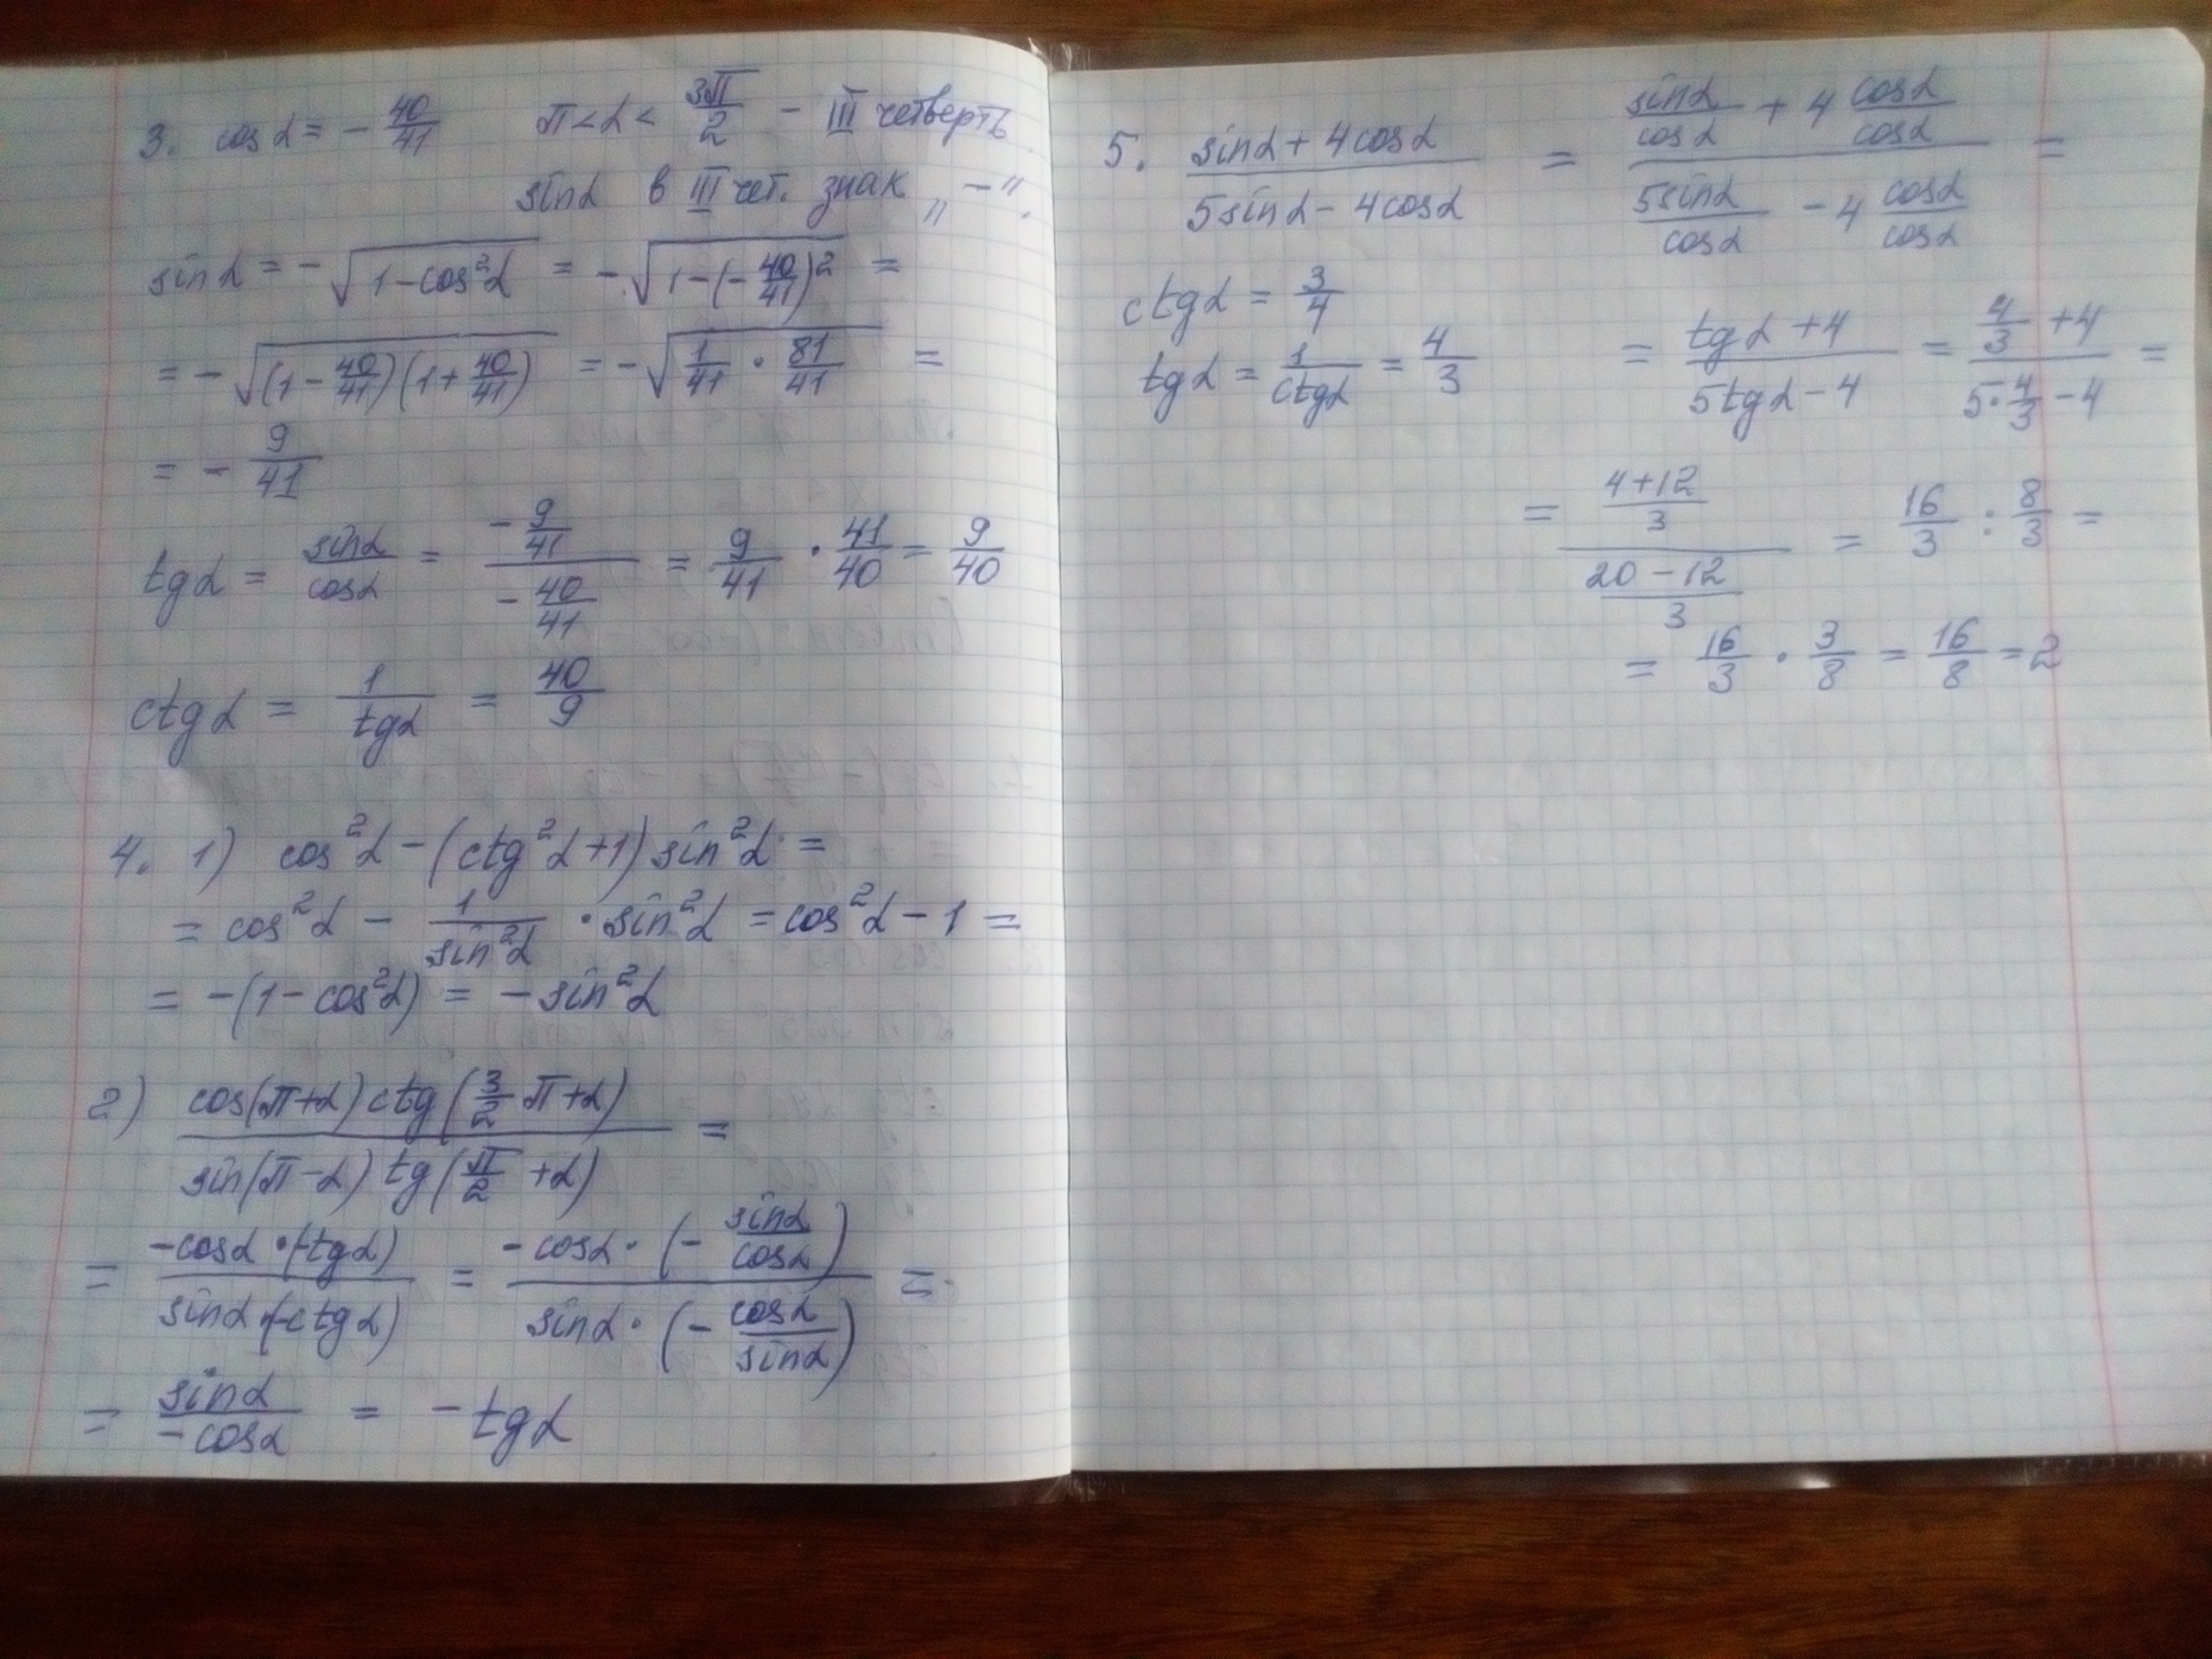 3. cos α = - 40/41   π < α < 3π/2 - III четверть
sin α в III чет. знак „-“.
sin α = -√(1 - cos²α) = -√(1 - (-40/41)²) =
= -√((1 - 40/41)(1 + 40/41)) = -√(1/41 · 81/41) =
= - 9/41
tg α = sin α/cos α = (-9/41)/(-40/41) = 9/41 · 41/40 = 9/40
ctg α = 1/tg α = 40/9
4. 1) cos²α - (ctg²α + 1) sin²α =
= cos²α - 1/sin²α · sin²α = cos²α - 1 =
= -(1 - cos²α) = - sin²α
2) (cos(π+α) ctg(3/2 π+α))/(sin(π-α) tg(π/2 +α)) =
= (-cos α · (-tg α))/(sin α · (-ctg α)) = (-cos α · (- sin α/cos α))/(sin α · (- cos α/sin α)) =
= sin α/-cos α = - tg α
5. (sin α + 4 cos α)/(5 sin α - 4 cos α) = (sin α/cos α + 4 cos α/cos α)/(5 sin α/cos α - 4 cos α/cos α) =
ctg α = 3/4
tg α = 1/ctg α = 4/3
= (tg α + 4)/(5 tg α - 4) = (4/3 + 4)/(5 · 4/3 - 4) =
= ((4+12)/3)/((20-12)/3) = 16/3 : 8/3 =
= 16/3 · 3/8 = 16/8 = 2